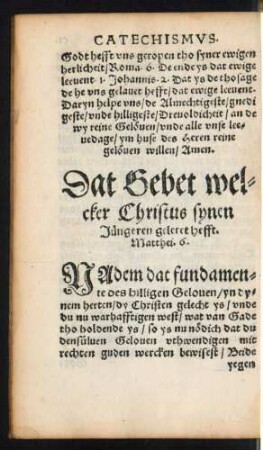 CATECHISMVS.
Godt hefft vns geropen tho syner ewigen
herlicheit/Roma. 6. De ende ys dat ewige
leeuent 1. Johannis. 2. Dat ys de tho sage
de he vns gelauet hefft/dat ewige leeuent.
Daryn helpe vns/de Almechtigiste/gnedi
geste/vnde hilligeste/Dreuoldicheit/an de
wy reine Gelöuen/vnde alle vnse lee-
uedage/ym huse des Heren reine
gelöuen willen/Amen.
Dat Gebet wel-
cker Christus synen
Jüngeren geleret hefft.
Matthei. 6.
NAdem dat fundamen-
te des hilligen Gelouen/yn dy-
nem herten/dy Christen gelecht ys/vnde
du nu warhafftigen west/wat van Gade
tho holdende ys/so ys nu nödich dat du
densüluen Gelouen vthwendigen mit
rechten guden wercken bewisest/Beide
yegen